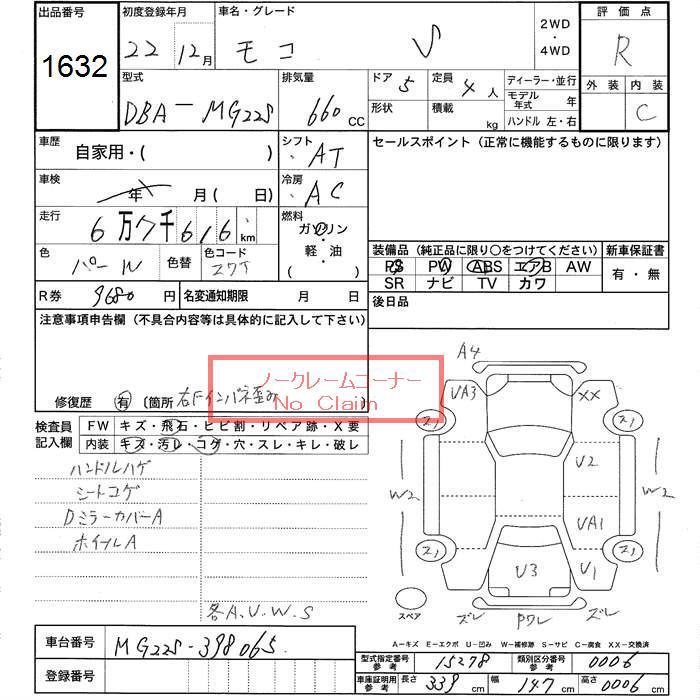 出品番号
1632
初度登録年月
22 12月
車名・グレード
モコ V
2WD
・
4WD
評価点
R
外装 内装
C
型式
DBA-MG22S
排気量
660 CC
ドア 5
形状
定員 4 人
積載 kg
ディーラー・並行
モデル年式 年
ハンドル 左・右
車歴
自家用・( )
シフト
AT
セールスポイント(正常に機能するものに限ります)
車検
年 月( 日)
冷房
AC
走行
6万7千616 km
燃料
ガソリン
・
軽・油
( )
色
パール
色替
色コード
装備品(純正品に限り〇をつけてください)
新車保証書
PS PW ABS エアB AW
SR ナビ TV カワ
有・無
R券 9680 円
名変通知期限 月 日
後日品
注意事項申告欄(不具合内容等は具体的に記入して下さい)
修復歴 有 〔箇所 右Fインパネ歪み
ノークレームコーナー
No Claim
検査員記入欄
FW キズ・飛石・ヒビ割・リペア跡・X要
内装 キズ・汚レ・コゲ・穴・スレ・キレ・破レ
ハンドルハゲ
シートコゲ
DミラーカバーA
ホイールA
各A.U.W.S
A4
UA3
XX
U2
W2
W2
UA1
U3
U1
スペア
ズレ Pワレ ズレ
A-キズ E-エクボ U-凹み W-補修跡 S-サビ C-腐食 XX-交換済
車台番号 MG22S-398065
登録番号
型式指定番号 参考 15278
類別区分番号 参考 0006
車庫証明用 参考 長さ 339 cm 幅 147 cm 高さ 0006 cm